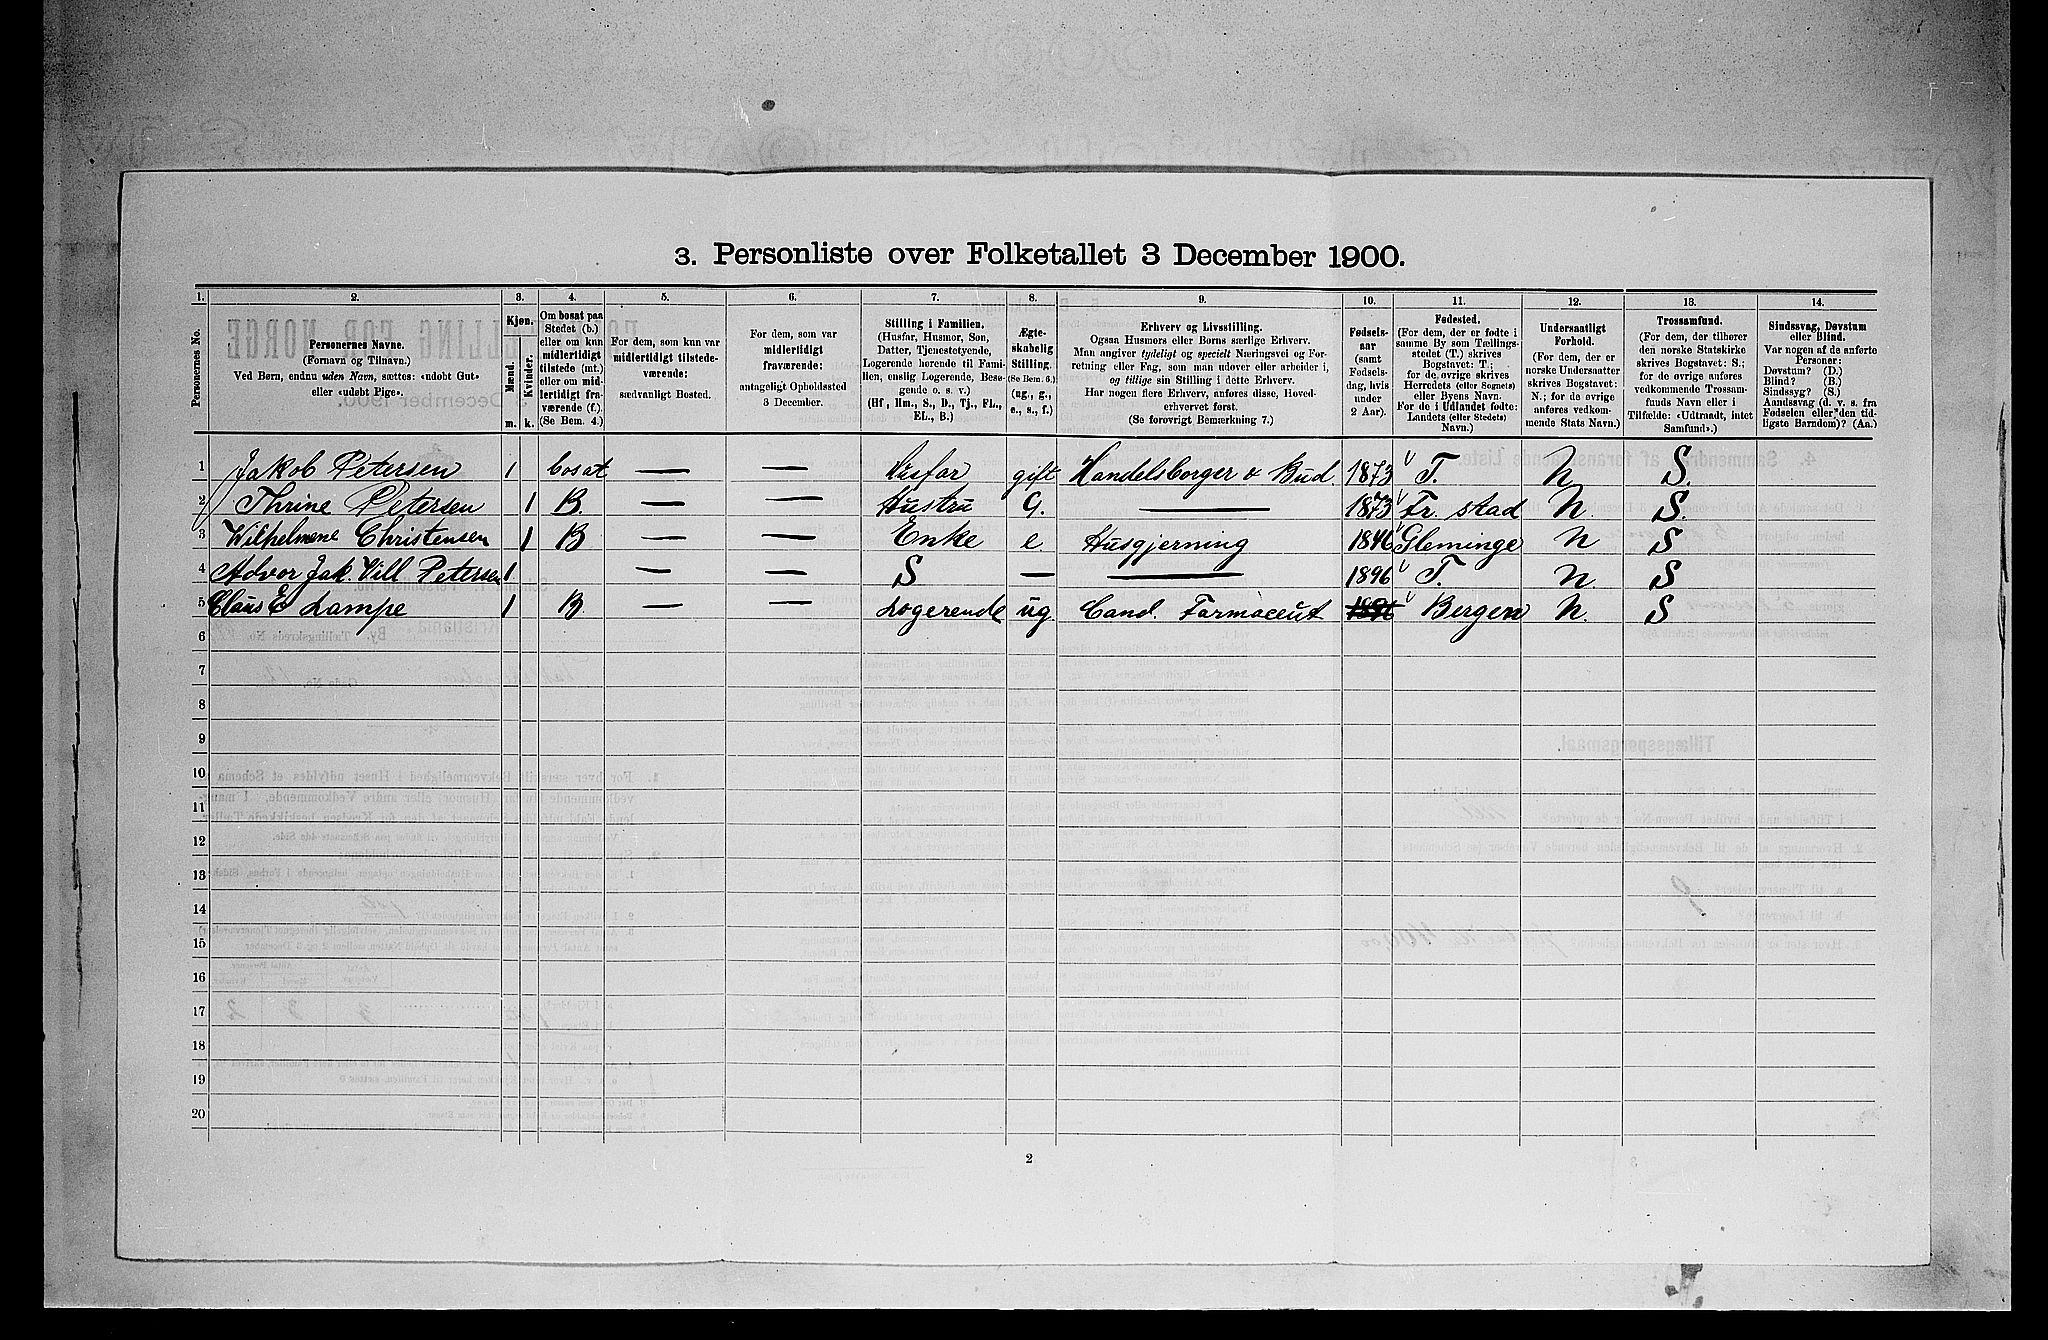 3. Personliste over Folketallet 3 December 1900.
1. 2. 3. 4. 5. 6. 7. 8. 9. 10. 11. 12. 13. 14.
Personernes No.
Personernes Navne.
(Fornavn og Tilnavn.)
Ved Børn, endnu uden Navn, sættes: «udøbt Gut»
eller «udøbt Pige».
Kjøn.
Mænd.
Kvinder.
m. k.
Om bosat paa
Stedet (b.)
eller om kun
midlertidigt
tilstede (mt.)
eller om mid-
lertidigt fra-
værende (f.)
(Se Bem. 4.)
For dem, som kun var
midlertidigt tilstede-
værende:
sædvanligt Bosted.
For dem, som var
midlertidigt
fraværende:
antageligt Opholdssted
3 December.
Stilling i Familien.
(Husfar, Husmor, Søn,
Datter, Tjenestetyende,
Logerende hørende til Fami-
lien, enslig Logerende, Besø-
gende o. s. v.)
(Hf, Hm., S., D., Tj., Fl.,
El., B.)
Ægte-
skabelig
Stilling.
(Se Bem. 6.)
(ug., g.,
e., s., f.)
Erhverv og Livsstilling.
Ogsaa Husmors eller Børns særlige Erhverv.
Man angiver tydeligt og specielt Næringsvei og For-
retning eller Fag, som man udøver eller arbeider i,
og tillige sin Stilling i dette Erhverv.
Har nogen flere Erhverv, anføres disse, Hoved-
erhvervet først.
(Se forøvrigt Bemærkning 7.)
Fødsels-
aar
(samt
Fødsels-
dag, hvis
under
2 Aar).
Fødested.
(For dem, der er fødte i
samme By som Tællings-
stedet (T.) skrives
Bogstavet: T.;
for de øvrige skrives
Herredets (eller Sognets)
eller Byens Navn.
For de i Udlandet fødte:
Landets (eller Stedets)
Navn.)
Undersaatligt
Forhold.
(For dem, der er
norske Undersaatter
skrives Bogstavet:
N.; for de øvrige
anføres vedkom-
mende Stats Navn.)
Trossamfund.
(For dem, der tilhører
den norske Statskirke
skrives Bogstavet: S.;
for de øvrige anføres
vedkommende Trossam-
funds Navn eller i
Tilfælde: «Udtraadt, intet
Samfund».)
Sindssvag, Døvstum
eller Blind.
Var nogen af de anførte
Personer:
Døvstum? (D.)
Blind? (B.)
Sindssyg? (S.)
Aandssvag (d. v. s. fra
Fødselen eller den tid-
ligste Barndom)? (Aa.)
1 Jakob Petersen 1 bosat — — Husfar gift Handelsborger & Bud 1873 T. N S.
2 Thrine Petersen 1 B. — — Hustru G. — 1873 Fr. stad N. S.
3 Wilhelmene Christensen 1 B — — Enke e. Husgjerning 1846 Gleminge N S
4 Advor Jak. Vill Petersen 1 — — S — — 1896 T. N. S
5 Claus E Lampe 1 B. — — Logerende ug. Cand. Farmaceut Bergen N. S
6
7
8
9
10
11
12
13
14
15
16
17
18
19
20
2